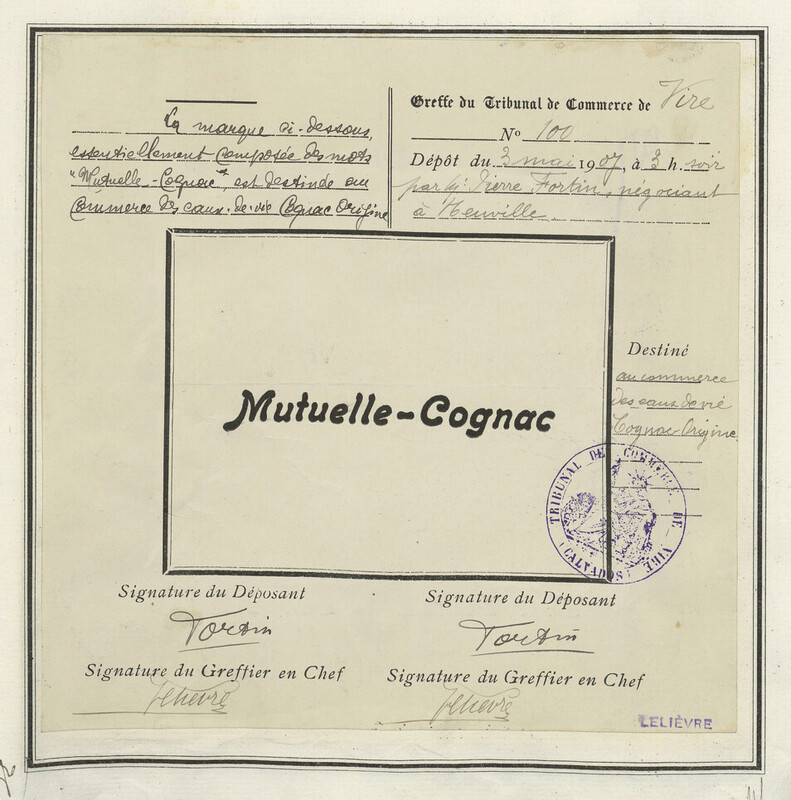 La marque ci-dessous,
essentiellement composée des mots
"Mutuelle-Cognac", est destinée au
Commerce des eaux-de-vie Cognac Origine
Greffe du Tribunal de Commerce de Vire
No 100
Dépôt du 3 mai 1907, à 3 h. soir
par Pierre Fortin, négociant
à Neuville.
Mutuelle-Cognac
Destiné
au commerce
des eaux de vie
Cognac-Origine
TRIBUNAL DE COMMERCE DE VIRE
(CALVADOS)
Signature du Déposant
Fortin
Signature du Greffier en Chef
Lelièvre
Signature du Déposant
Fortin
Signature du Greffier en Chef
Lelièvre
LELIÈVRE